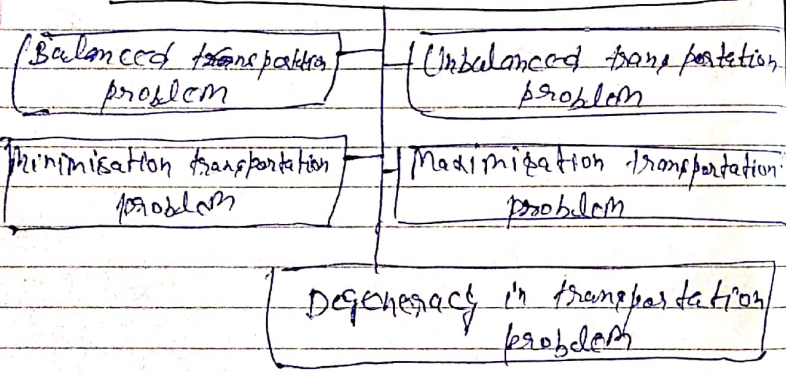 Balanced transportation
problem
Unbalanced transportation
problem
Minimisation transportation
problem
Maximisation transportation
problem
Degeneracy in transportation
problem